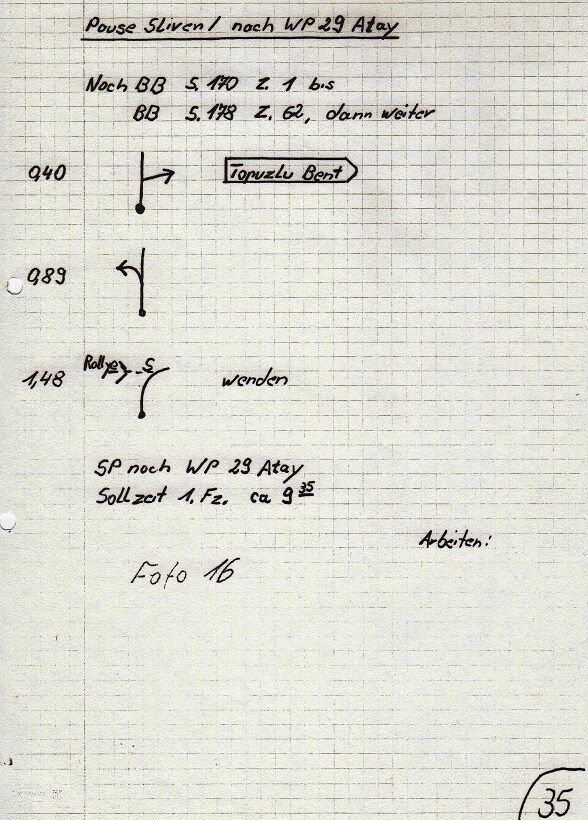 Pause Sliven / nach WP 29 Atay
Nach BB S. 170 Z. 1 bis
BB S. 178 Z. 62, dann weiter
0,40 Topuzlu Bent
0,89
1,48 Rallye S wenden
SP nach WP 29 Atay
Sollzeit 1. Fz. ca 9 35
Arbeiten:
Foto 16
35